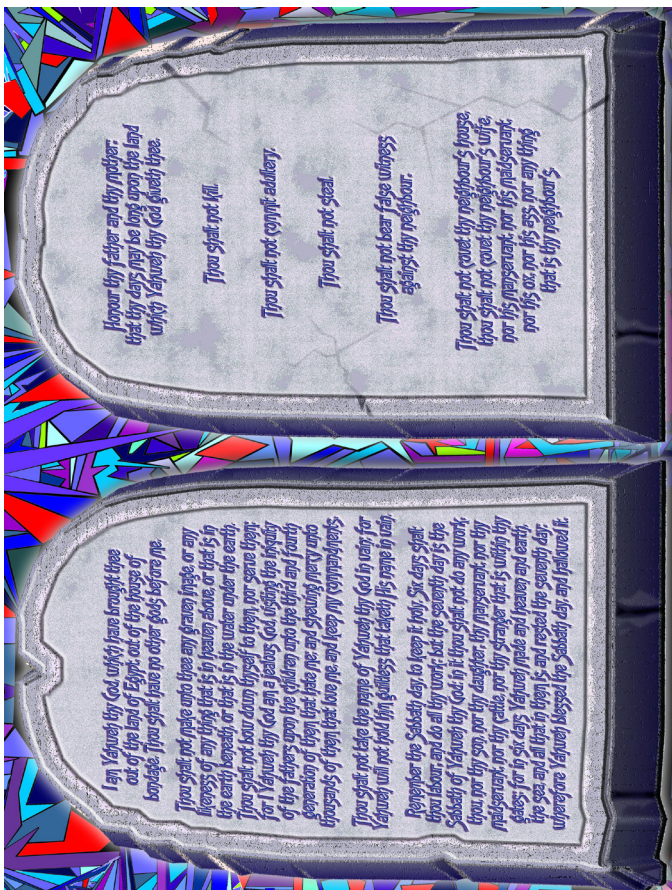 I am Yahweh thy God which have brought thee
out of the land of Egypt out of the house of
bondage. Thou shalt have no other gods before me.
Thou shalt not make unto thee any graven image, or any
likeness of any thing that is in heaven above, or that is in
the earth beneath, or that is in the water under the earth.
Thou shalt not bow down thyself to them, nor serve them:
for I Yahweh thy God am a jealous God, visiting the iniquity
of the fathers upon the children unto the third and fourth
generation of them that hate me and shewing mercy unto
thousands of them that love me and keep my commandments.
Thou shalt not take the name of Yahweh thy God in vain; for
Yahweh will not hold him guiltless that taketh His name in vain.
Remember the Sabbath day, to keep it holy. Six days shalt
thou labour, and do all thy work: but the seventh day is the
Sabbath of Yahweh thy God: in it thou shalt not do any work,
thou, nor thy son, nor thy daughter, thy manservant, nor thy
maidservant, nor thy cattle, nor thy stranger that is within thy
gates: for in six days Yahweh made and heaven and earth,
the sea, and all that in them is, and rested the seventh day:
wherefore Yahweh blessed the Sabbath day, and hallowed it.
Honour thy father and thy mother:
that thy days may be long upon the land
which Yahweh thy God giveth thee.
Thou shalt not kill.
Thou shalt not commit adultery.
Thou shalt not steal.
Thou shalt not bear false witness
against thy neighbour.
Thou shalt not covet thy neighbour's house,
thou shalt not covet thy neighbour's wife,
nor his manservant, nor his maidservant,
nor his ox, nor his ass, nor any thing
that is thy neighbour's.